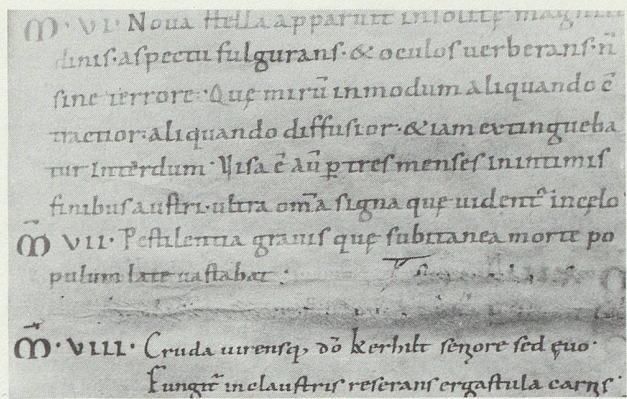 M̄·VI· Noua stella apparuit insolitę magnitu
dinis·aspectu fulgurans·& oculos uerberans·n̄
sine terrore·Quę mirū in modum aliquando c̄
tractior·aliquando diffusior·&iam extingueba
tur interdum·Visa ē aū p tres menses in intimis
finibus austri·ultra om̄a signa quę uident̄ in cęlo
M̄ VII· Pestilentia grauis quę subitanea morte po
pulum late uastabat:
M̄·VIII· Cruda uirensq; dō kerhilt senore sed ęuo·
Fungit̄ in claustris reserans ergastula carnis·